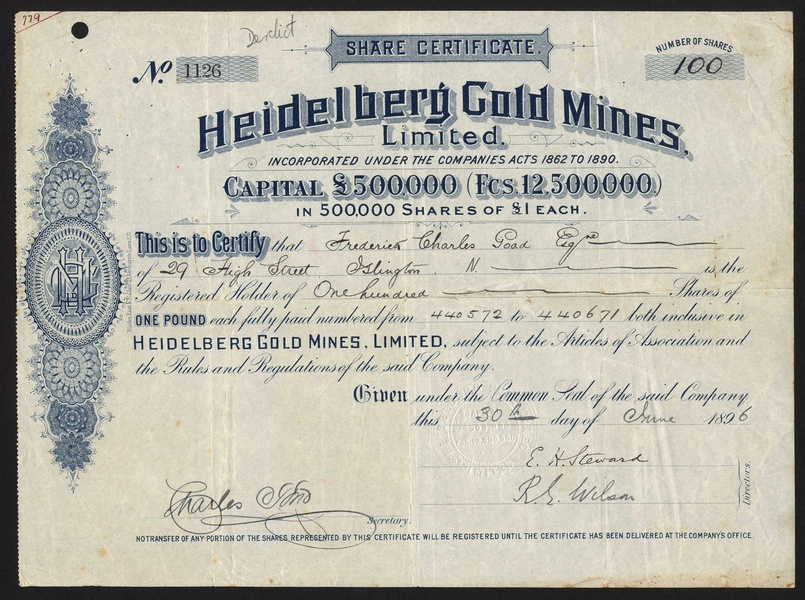 779
Derelict
SHARE CERTIFICATE.
No 1126
NUMBER OF SHARES
100
Heidelberg Gold Mines,
Limited.
INCORPORATED UNDER THE COMPANIES ACTS 1862 TO 1890.
CAPITAL £500,000 (FCS. 12,500,000.)
IN 500,000 SHARES OF £1 EACH.
This is to Certify that Frederick Charles Goad Esqre
of 29 High Street Islington. N. is the
Registered Holder of One hundred Shares of
ONE POUND each fully paid numbered from 440572 to 440671 both inclusive in
HEIDELBERG GOLD MINES, LIMITED, subject to the Articles of Association and
the Rules and Regulations of the said Company.
Given under the Common Seal of the said Company
this 30th day of June 1896
E. H. Steward
R. E. Wilson
Directors.
Charles
Secretary.
NO TRANSFER OF ANY PORTION OF THE SHARES REPRESENTED BY THIS CERTIFICATE WILL BE REGISTERED UNTIL THE CERTIFICATE HAS BEEN DELIVERED AT THE COMPANY'S OFFICE.